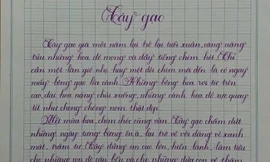 Cây gạo
Cây gạo già mỗi năm lại trở lại tuổi xuân, càng nặng
trĩu những hoa đỏ mọng và đầy tiếng chim hót. Chỉ
cần một làn gió nhẹ hay một đôi chim mới đến là có ngay
mấy bông gạo lìa cành. Những bông hoa rơi từ trên
cao, đài hoa nặng chúi xuống, những cánh hoa đỏ rực quay
tít như chong chóng nom thật đẹp.
Hết mùa hoa, chim chóc cũng vãn. Cây gạo chấm dứt
những ngày tưng bừng ồn ã, lại trở về với dáng vẻ xanh
mát, trầm tư. Cây đứng im cao lớn, hiền lành, làm tiêu
cho những con đò cập bến và cho những đứa con về thăm